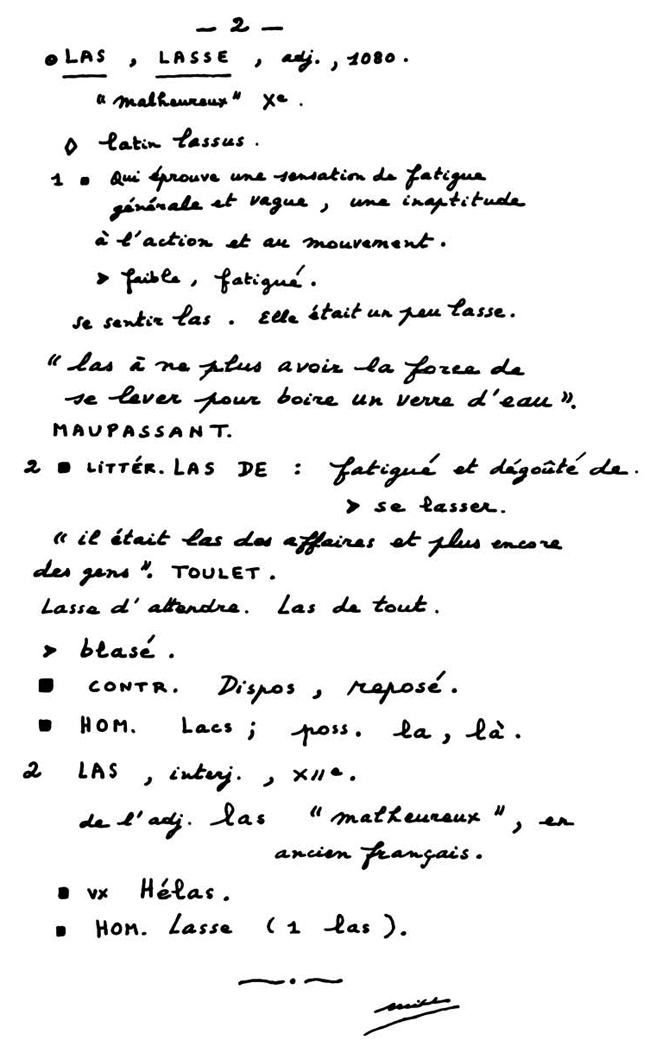 – 2 –
• LAS , LASSE , adj. , 1080 .
" malheureux " Xe .
◊ latin lassus .
1 ▪ Qui éprouve une sensation de fatigue
générale et vague , une inaptitude
à l'action et au mouvement .
> faible , fatigué .
se sentir las . Elle était un peu lasse .
" las à ne plus avoir la force de
se lever pour boire un verre d'eau ".
MAUPASSANT.
2 ▪ LITTÉR. LAS DE : fatigué et dégoûté de .
> se lasser .
" il était las des affaires et plus encore
des gens ". TOULET .
Lasse d'attendre . Las de tout .
> blasé .
■ CONTR. Dispos , reposé .
■ HOM. Lacs ; poss. la , là .
2 LAS , interj. , XIIe .
de l'adj. las " malheureux " , en
ancien français .
▪ vx Hélas .
▪ HOM. Lasse ( 1 las ) .